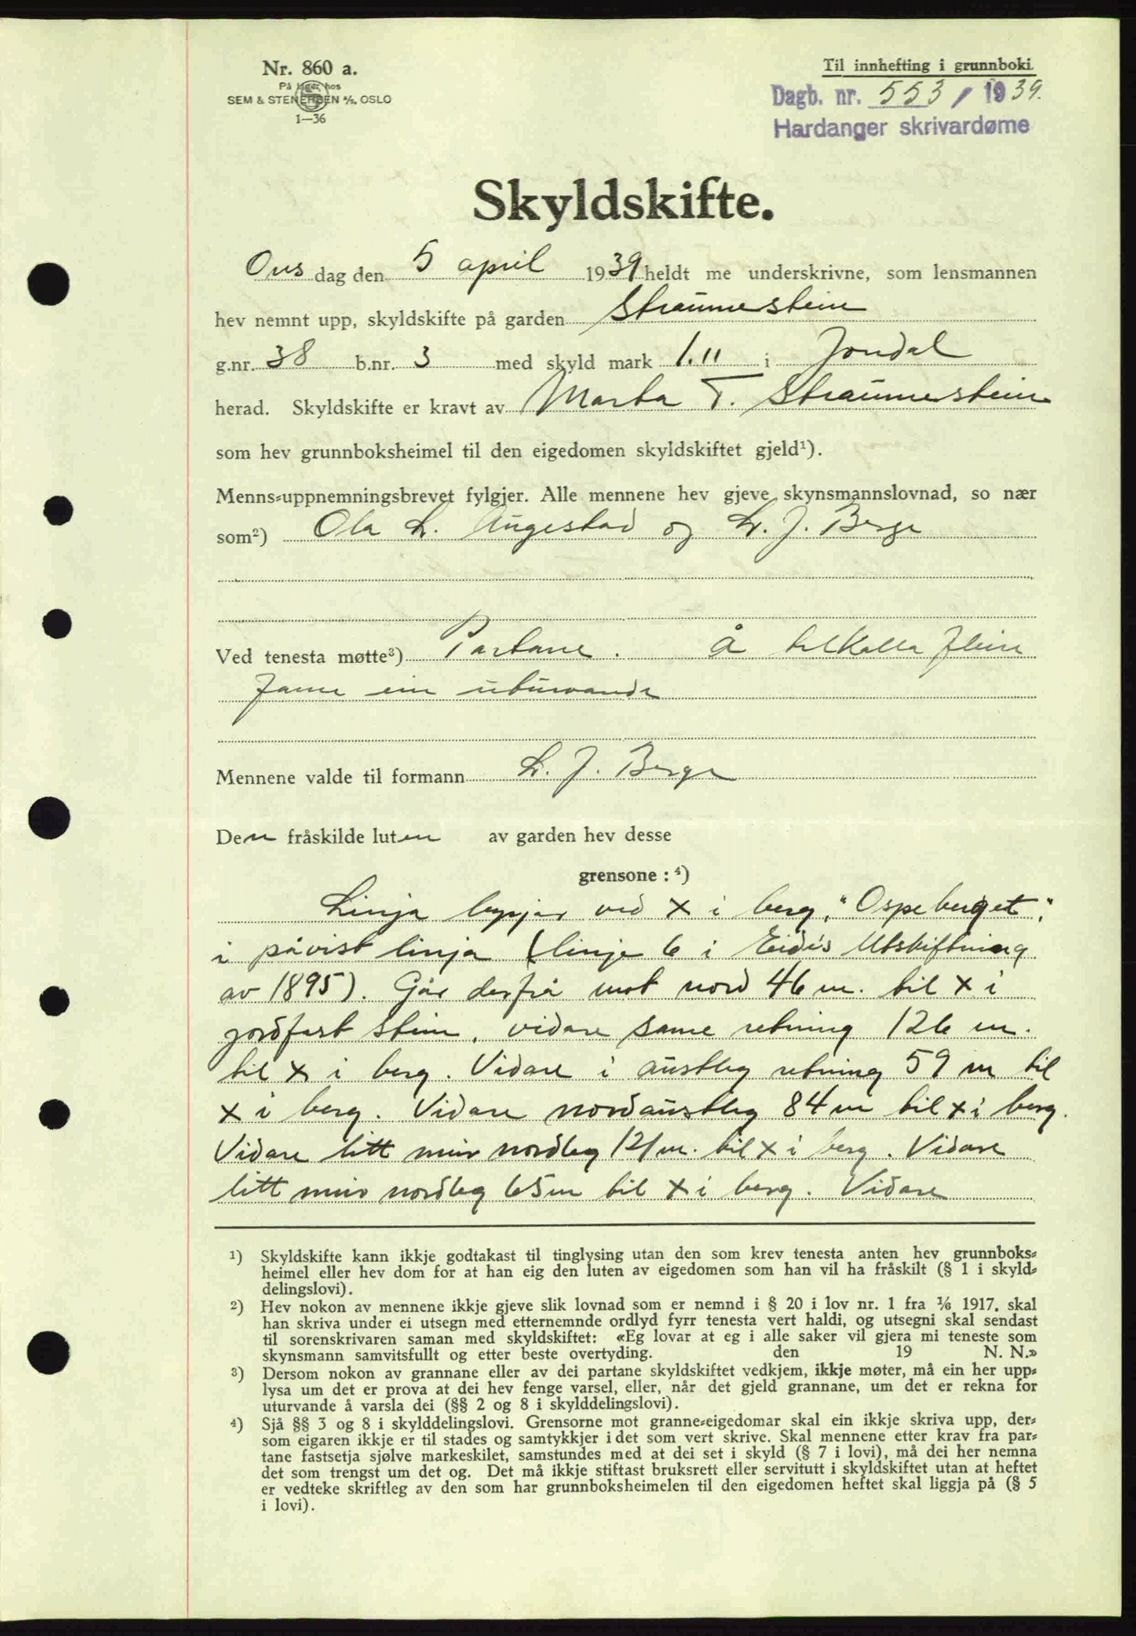 Nr. 860 a.
På lager hos
SEM & STENERSEN A/S, OSLO
1—36
Til innhefting i grunnboki
Dagb. nr. 553 / 1939.
Hardanger skrivardøme
Skyldskifte.
Ons dag den 5 april 1939 heldt me underskrivne, som lensmannen
hev nemnt upp, skyldskifte på garden Straumerstein
g.nr. 38 b.nr. 3 med skyld mark 1.11 i Jondal
herad. Skyldskifte er kravt av Marta T. Straumerstein
som hev grunnboksheimel til den eigedomen skyldskiftet gjeld¹).
Menns-uppnemningsbrevet fylgjer. Alle mennene hev gjeve skynsmannslovnad, so nær
som²) Ola L. Augestad og L. J. Berge
Ved tenesta møtte³) Partane. Å tilkalla fleire
fann ein uturvande
Mennene valde til formann L. J. Berge
Den fråskilde luten av garden hev desse
grensone: ⁴)
Linja byrjar ved X i berg, "Ospeberget",
i påvist linja (linje 6 i Eide's Utskiftning
av 1895). Går derfrå mot nord 46 m. til X i
jordfast stein, vidare same retning 126 m.
til X i berg. Vidare i austleg retning 59 m til
X i berg. Vidare nordaustleg 84 m til X i berg.
Vidare litt meir nordleg 121 m. til X i berg. Vidare
litt meir nordleg 65 m til X i berg. Vidare
¹) Skyldskifte kann ikkje godtakast til tinglysing utan den som krev tenesta anten hev grunnboks-
heimel eller hev dom for at han eig den luten av eigedomen som han vil ha fråskilt (§ 1 i skyld-
delingslovi).
²) Hev nokon av mennene ikkje gjeve slik lovnad som er nemnd i § 20 i lov nr. 1 fra 1/6 1917, skal
han skriva under ei utsegn med etternemnde ordlyd fyrr tenesta vert haldi, og utsegni skal sendast
til sorenskrivaren saman med skyldskiftet: «Eg lovar at eg i alle saker vil gjera mi teneste som
skynsmann samvitsfullt og etter beste overtyding. den 19 N. N.»
³) Dersom nokon av grannane eller av dei partane skyldskiftet vedkjem, ikkje møter, må ein her upp-
lysa um det er prova at dei hev fenge varsel, eller, når det gjeld grannane, um det er rekna for
uturvande å varsla dei (§§ 2 og 8 i skylddelingslovi).
⁴) Sjå §§ 3 og 8 i skylddelingslovi. Grensorne mot granne-eigedomar skal ein ikkje skriva upp, der-
som eigaren ikkje er til stades og samtykkjer i det som vert skrive. Skal mennene etter krav fra par-
tane fastsetja sjølve markeskilet, samstundes med at dei set i skyld (§ 7 i lovi), må dei her nemna
det som trengst um det og. Det må ikkje stiftast bruksrett eller servitutt i skyldskiftet utan at heftet
er vedteke skriftleg av den som har grunnboksheimelen til den eigedomen heftet skal liggja på (§ 5
i lovi).